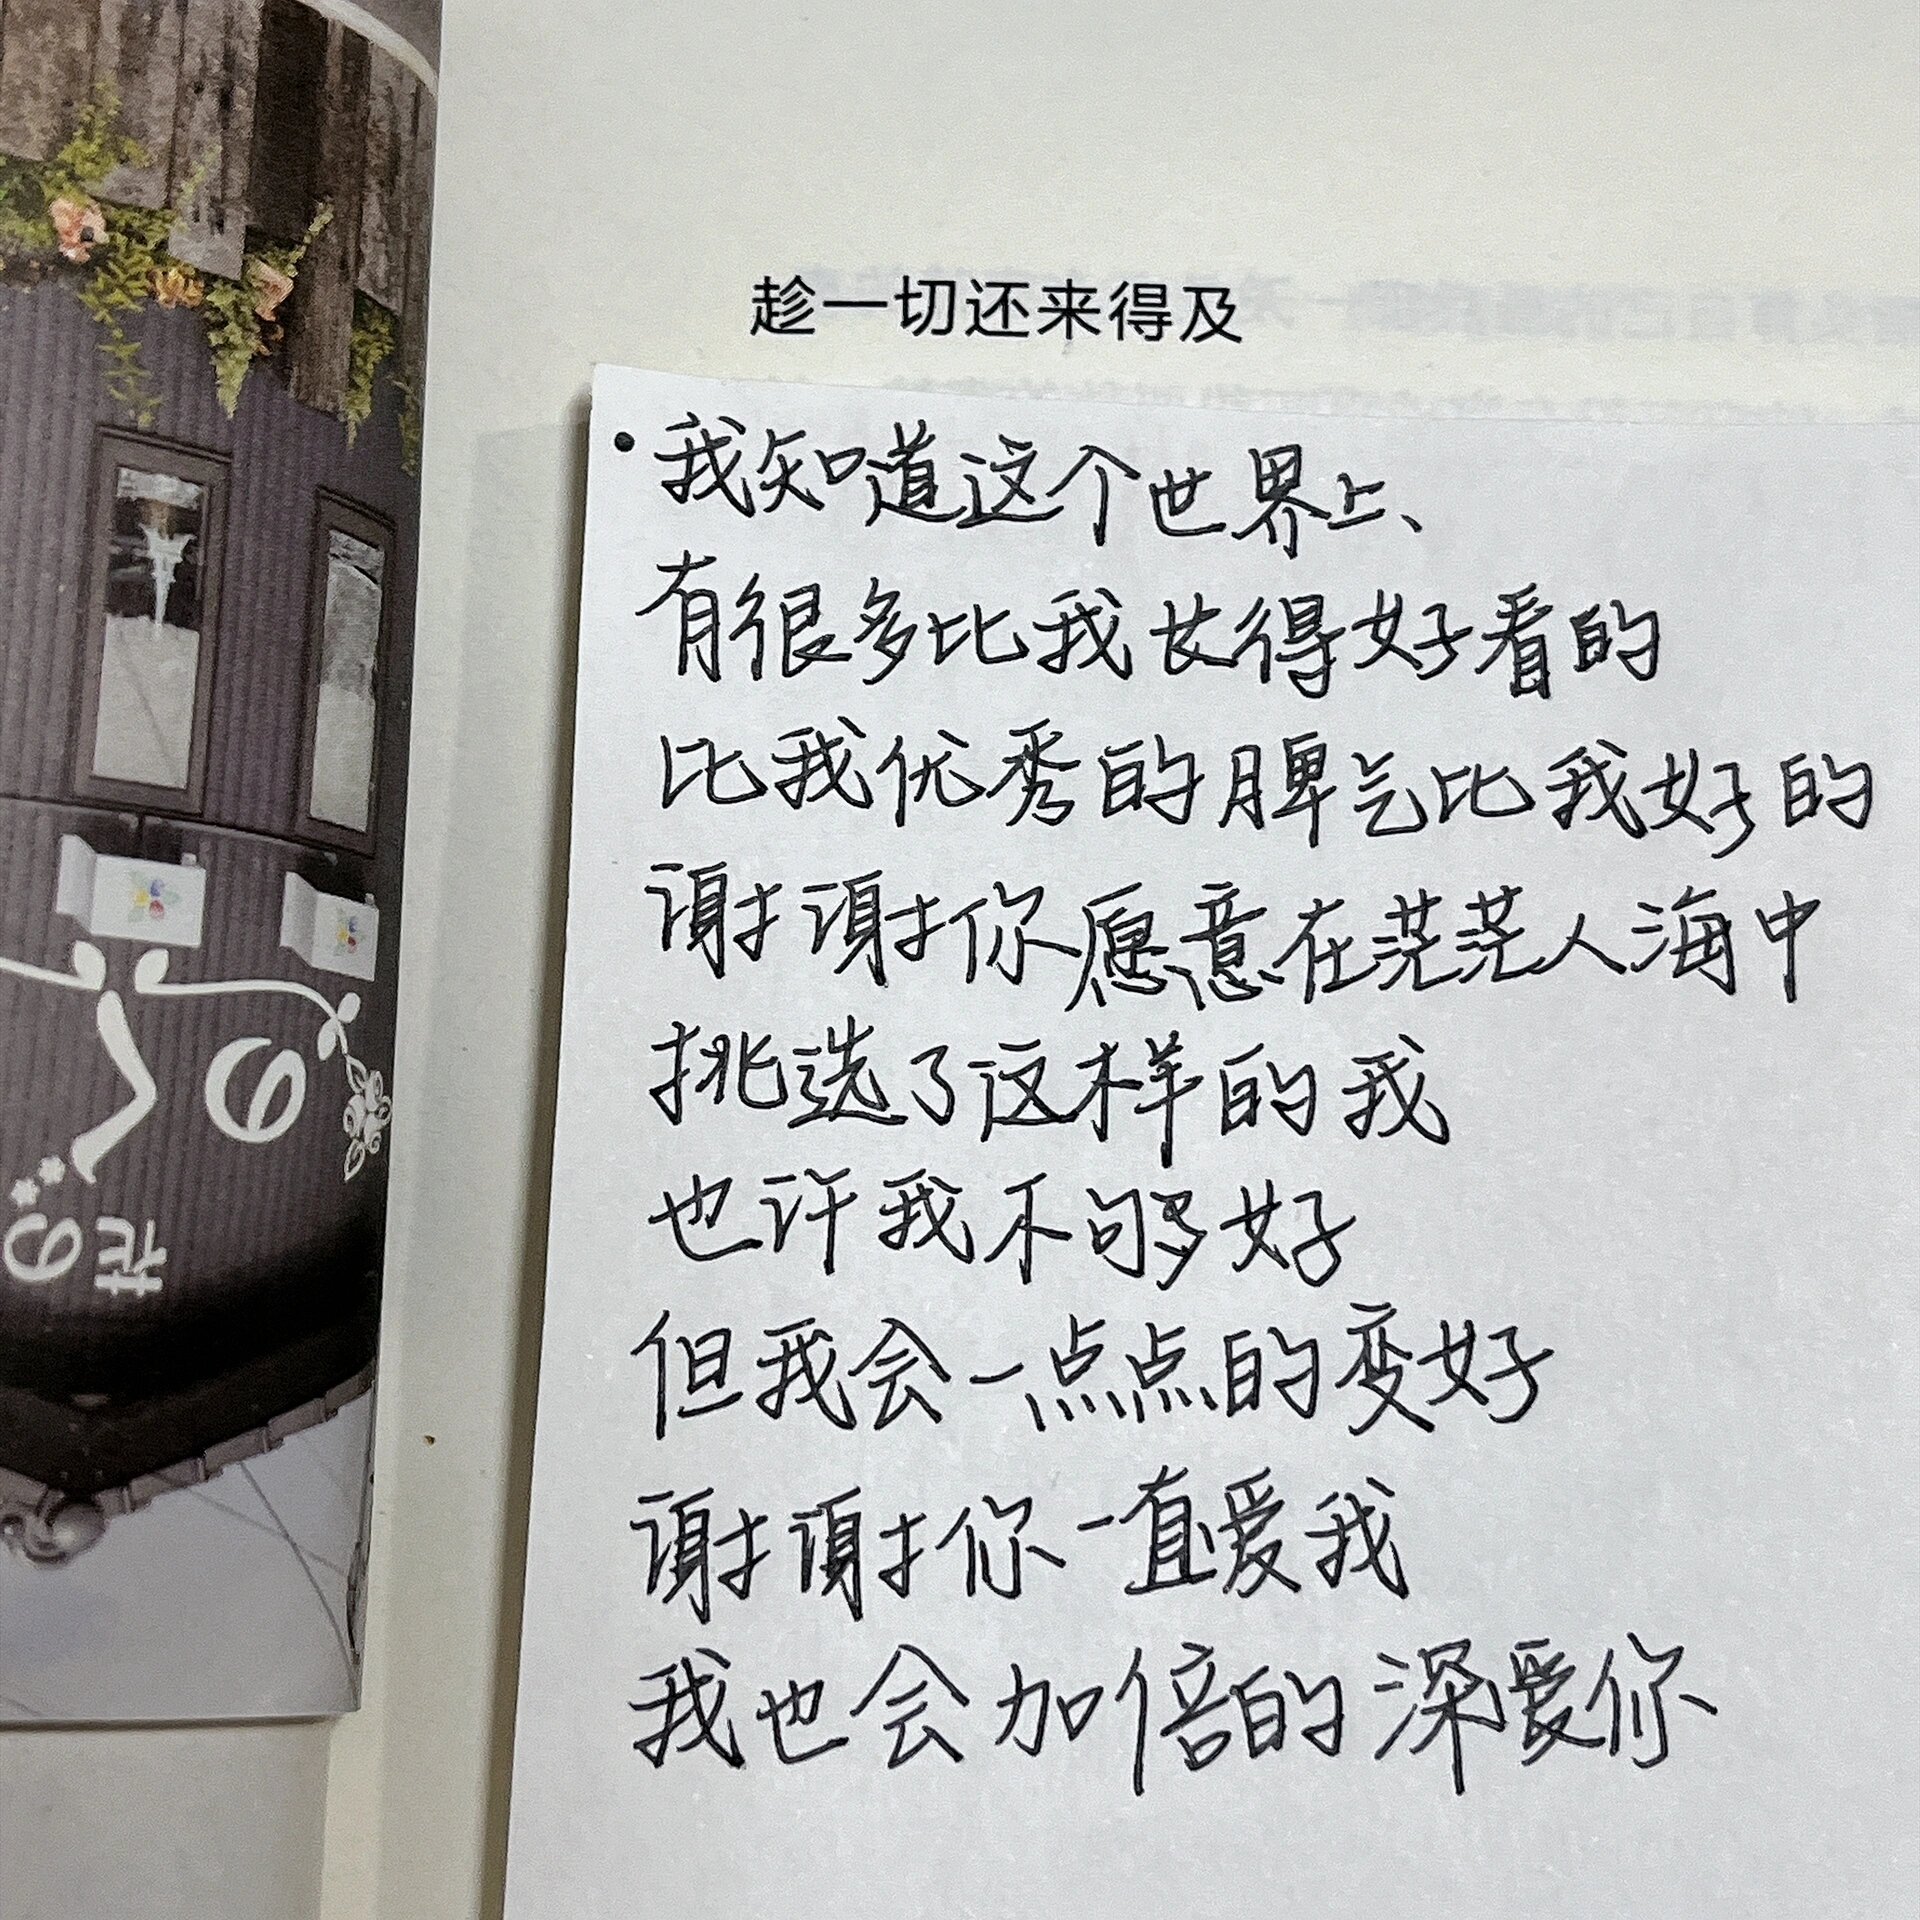 趁一切还来得及
·我知道这个世界上、
有很多比我长得好看的
比我优秀的脾气比我好的
谢谢你愿意在茫茫人海中
挑选了这样的我
也许我不够好
但我会一点点的变好
谢谢你一直爱我
我也会加倍的深爱你
花